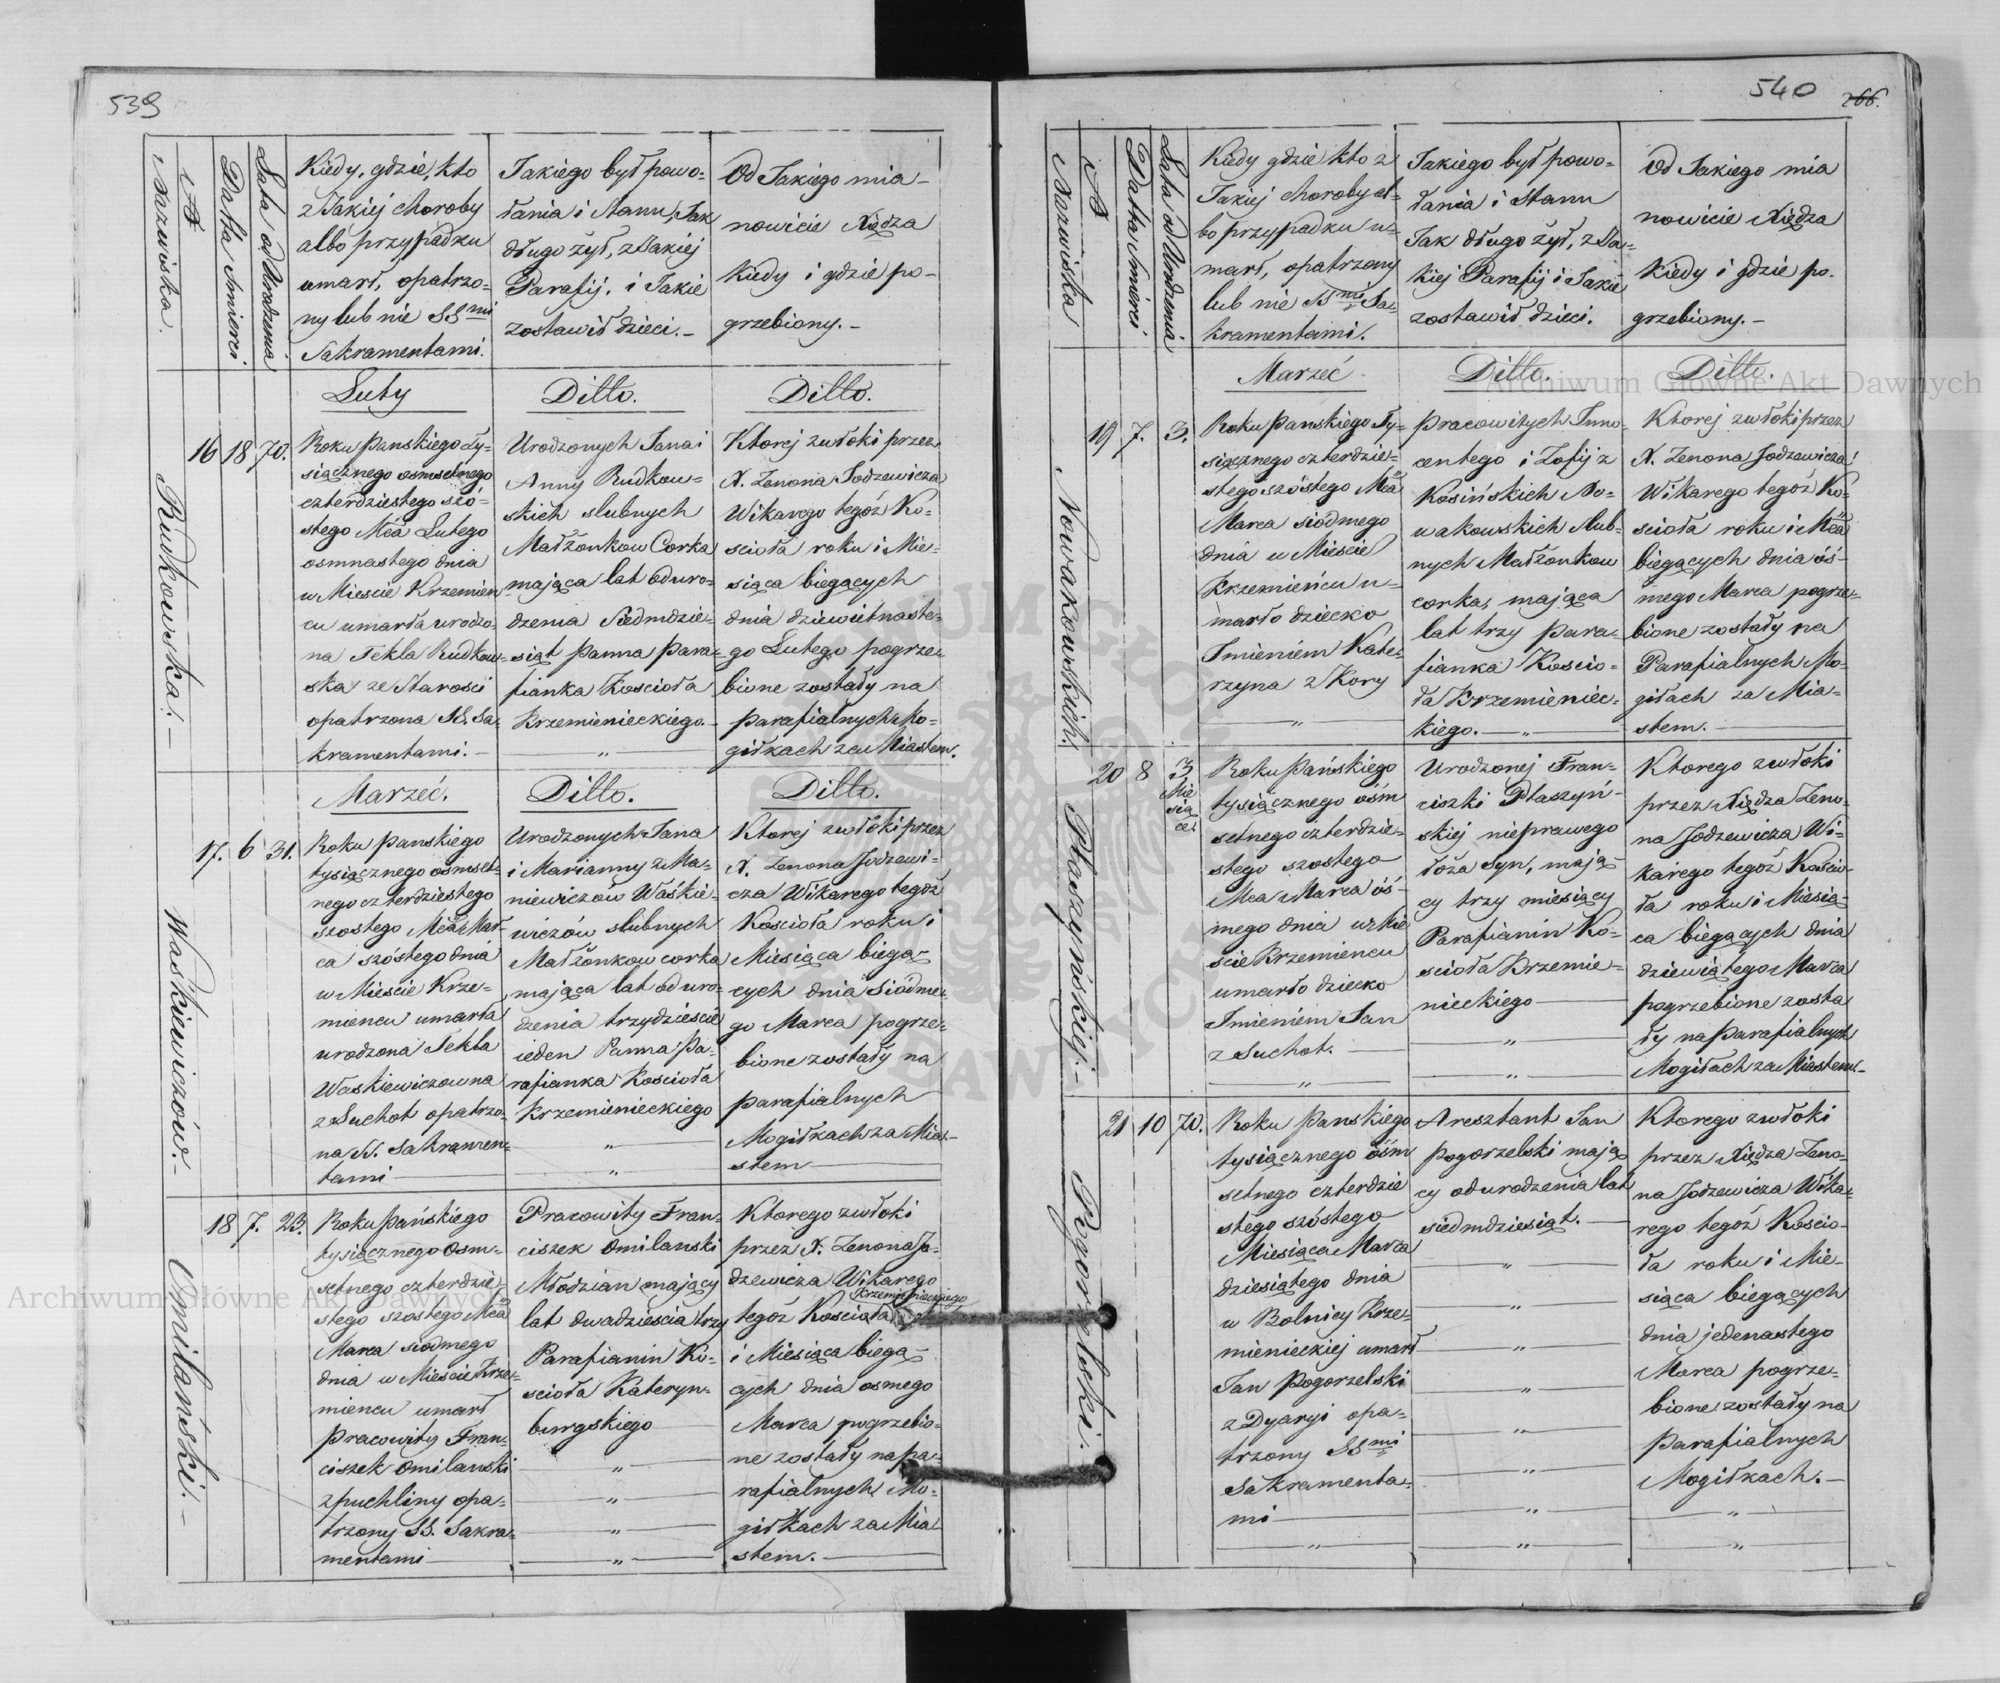 539
Nazwiska.
№
Datta Smierci
Lata od Urodzenia
Kiedy, gdzie, kto
z Jakiej choroby
albo przypadku
umarł, opatrzo-
ny lub nie SSmi
Sakramentami.
Jakiego był powo-
łania i stanu, Jak
długo żył, z Jakiej
Parafij, i Jakie
zostawił dzieci.-
Od Jakiego mia-
nowicie Xiędza
Kiedy i gdzie po-
grzebiony.-
Luty
Ditto.
Ditto.
Rudkowska.-
16 18 70.
Roku Panskiego Ty-
siącznego osmsetnego
czterdziestego szó-
stego Mca Lutego
osmnastego dnia
w Miescie Krzemien
cu umarła urodzo-
na Tekla Rudkow-
ska ze Starosci
opatrzona SS. Sa-
kramentami.-
Urodzonych Jana i
Anny Rudkow-
skich slubnych
Małżonkow Corka
mająca lat oduro-
dzenia Siedmdzie-
siąt Panna Para-
fianka Kosciola
Krzemienieckiego.-
"
Ktorej zwłoki przez
X. Zenona Jodzewicza
Wikarego tegóż Ko-
scioła roku i Mie-
siąca biegących
dnia dziewietnaste-
go Lutego pogrze-
bione zostały na
parafialnych Mo-
giłkach za Miastem.
Marzéc.
Ditto.
Ditto.
Waśkiewiczów.-
17. 6 31.
Roku Panskiego
tysiącznego osmset-
nego czterdziestego
szostego Mca Mar-
ca szóstego dnia
w Miescie Krze-
miencu umarła
urodzona Tekla
Waskiewiczowna
z Suchot opatrzo-
na SS. Sakramen-
tami
Urodzonych Jana
i Marianny z Ma-
niewiczów Waśkie-
wiczów slubnych
Małżonkow corka
mająca lat oduro-
dzenia trzydziescie
ieden Panna Pa-
rafianka Koscioła
Krzemienieckiego
"
"
Ktorej zwłoki przez
X. Zenona Jodzewi-
cza Wikarego tegóż
Koscioła roku i
Miesiąca biegą-
cych dnia Siódme-
go Marca pogrze-
bione zostały na
parafialnych
Mogiłkach za Mia-
stem
Omilański.-
18 7. 23.
Roku Pańskiego
tysiącznego Osm-
setnego czterdzie-
stego szostego Mca
Marca siodmego
dnia w Miescie Krze-
miencu umarł
Pracowity Fran-
ciszek Omilanski
z puchliny opa-
trzony SS. Sakra-
mentami
Pracowity Fran-
ciszek Omilanski
Młodzian mający
lat dwadziescia trzy
Parafianin Ko-
scioła Kateryn-
burgskiego
"
"
"
"
Ktorego zwłoki
przez X. Zenona Jo-
dzewicza Wikarego
Krzemienieckiego
tegóż Koscioła
i Miesiąca biegą-
cych dnia osmego
Marca pogrzebio-
ne zostały na pa-
rafialnych Mo-
giłkach za Mia-
stem.
540
266.
Nazwiska
№
Datta Smierci
Lata od Urodzenia
Kiedy gdzie kto z
Jakiej choroby al-
bo przypadku u-
marł, opatrzony
lub nie SSmi Sa-
kramentami.
Jakiego był powo-
łania i stanu
Jak długo żył, z Ja-
kiej Parafij i Jakie
zostawił dzieci.
Od Jakiego mia
nowicie Xiędza
Kiedy i gdzie po-
grzebiony.-
Marzéc
Ditto.
Ditto.
Nowakowskich.
19 7. 3.
Roku Panskiego Ty-
siącznego czterdzie-
stego szóstego Mca
Marca siódmego
dnia w Miescie
Krzemieńcu u-
marło dziecko
Imieniem Kate-
rzyna z Kory
"
Pracowitych Inno-
centego i Zofij z
Kosińskich No-
wakowskich slub-
nych Małżonkow
corka, mająca
lat trzy Para-
fianka Koscio-
ła Krzemieniec-
kiego. "
Ktorej zwłoki przez
X. Zenona Jodzewicza
Wikarego tegóż Ko-
scioła roku i Mca
biegących dnia óś-
mego Marca pogrze-
bione zostały na
Parafialnych Mo-
giłach za Mia-
stem.
Płaszyńskiej.-
20 8 3
Mie
sią
ce.
Roku Pańskiego
tysiącznego óśm
setnego czterdzie-
stego szostego
Mca Marca óś-
mego dnia w Mie
scie Krzemiencu
umarło dziecko
Imieniem Jan
z Suchot.
"
Urodzonej Fran-
ciszki Płaszyń-
skiej nieprawego
łoża Syn, mają-
cy trzy miesiący
Parafianin Ko-
scioła Krzemie-
nieckiego
"
"
Ktorego zwłoki
przez Xiędza Zeno-
na Jodzewicza Wi-
karego tegoż Kościo-
ła roku i Miesią-
ca biegących dnia
dziewiątego Marca
pogrzebione zosta
ły na Parafialnych
Mogiłach za Miastem.-
Pogorzelski.
21 10 70.
Roku Panskiego
tysiącznego óśm
setnego czterdzie
stego szóstego
Miesiąca Marca
dziesiątego dnia
w Bolnicy Krze-
mienieckiej umarł
Jan Pogorzelski
z Dyaryi opa-
trzony SSmi
Sakramenta-
mi
"
Aresztant Jan
Pogorzelski mają
cy od urodzenia lat
siedmdziesiąt.
"
"
"
"
"
"
"
"
Ktorego zwłoki
przez Xiędza Zeno-
na Jodzewicza Wika-
rego tegóż Koscio-
ła roku i Mie-
siąca biegących
dnia jedenastego
Marca pogrze-
bione zostały na
Parafialnych
Mogiłkach.-
"
"
Archiwum Główne Akt Dawnych
Archiwum Główne Akt Dawnych